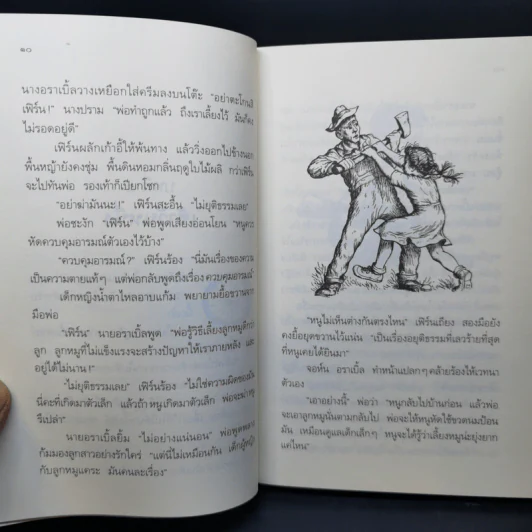 ๒๐
นางอราเบิ้ลวางเหยือกใส่ครีมลงบนโต๊ะ "อย่าตะโกนสิ
เฟิร์น!" นางปราม "พ่อทำถูกแล้ว ถึงเราเลี้ยงไว้ มันก็คง
ไม่รอดอยู่ดี"
เฟิร์นผลักเก้าอี้ให้พ้นทาง แล้ววิ่งออกไปข้างนอก
พื้นหญ้ายังคงชุ่ม พื้นดินหอมกลิ่นฤดูใบไม้ผลิ กว่าเฟิร์น
จะไปทันพ่อ รองเท้าก็เปียกโชก
"อย่าฆ่ามันนะ!" เฟิร์นสะอื้น "ไม่ยุติธรรมเลย"
พ่อชะงัก "เฟิร์น" พ่อพูดเสียงอ่อนโยน "หนูควร
หัดควบคุมอารมณ์ตัวเองไว้บ้าง"
"ควบคุมอารมณ์?" เฟิร์นร้อง "นี่มันเรื่องของความ
เป็นความตายแท้ๆ แต่พ่อกลับพูดถึงเรื่องควบคุมอารมณ์"
เด็กหญิงน้ำตาไหลอาบแก้ม พยายามยื้อขวานจาก
มือพ่อ
"เฟิร์น" นายอราเบิ้ลพูด "พ่อรู้วิธีเลี้ยงลูกหมูดีกว่า
ลูก ลูกหมูที่ไม่แข็งแรงจะสร้างปัญหาให้เราภายหลัง และ
อยู่ได้ไม่นาน!"
"ไม่ยุติธรรมเลย" เฟิร์นร้อง "ไม่ใช่ความผิดของมัน
นี่คะที่เกิดมาตัวเล็ก แล้วถ้าหนูเกิดมาตัวเล็ก พ่อจะฆ่าหนู
รึเปล่า"
นายอราเบิ้ลยิ้ม "ไม่อย่างแน่นอน" พ่อพูดพลาง
ก้มมองลูกสาวอย่างรักใคร่ "แต่นี่ไม่เหมือนกัน เด็กผู้หญิง
กับลูกหมูแคระ มันคนละเรื่อง"
"หนูไม่เห็นต่างกันตรงไหน" เฟิร์นเถียง สองมือยัง
คงยื้อยุดขวานไว้แน่น "เป็นเรื่องอยุติธรรมที่เลวร้ายที่สุด
ที่หนูเคยได้ยินมา"
จอห์น อราเบิ้ล ทำหน้าแปลกๆ คล้ายร้องไห้เวทนา
ตัวเอง
"เอาอย่างนี้" พ่อว่า "หนูกลับไปบ้านก่อน แล้วพ่อ
จะเอาลูกหมูนั่นตามกลับไป พ่อจะให้หนูหัดใช้ขวดนมป้อน
มัน เหมือนดูแลเด็กเล็กๆ หนูจะได้รู้ว่าเลี้ยงหมูน่ะยุ่งยาก
แค่ไหน"